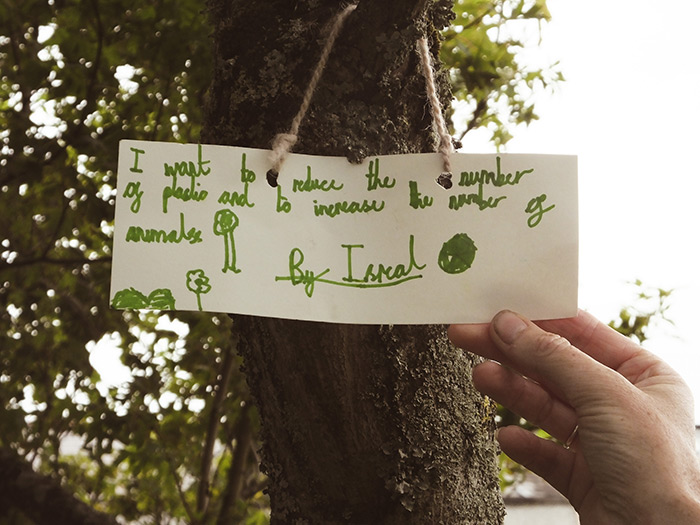 I want to reduce the number
of plastic and to increase the number of
animals
By Isreal